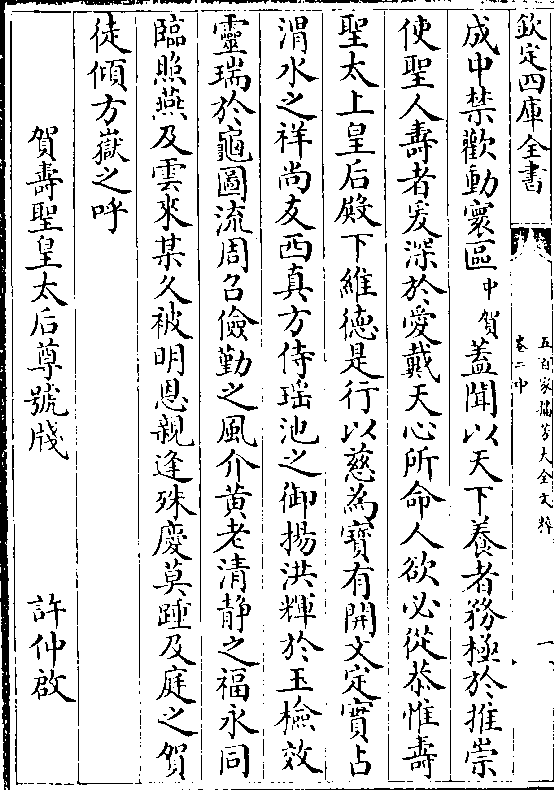 欽定四庫全書
五百家播芳大全文粹
卷二中
一
成中禁歡動寰區中賀蓋聞以天下養者務極於推崇
使聖人壽者爰深於愛戴天心所命人欲必從恭惟壽
聖太上皇后殿下維德是行以慈為寶有開文定實占
渭水之祥尚友西真方侍瑶池之御揚洪輝於玉檢效
靈瑞於龜圖流周召儉勤之風介黄老清静之福永同
臨照燕及雲來某久被明恩親逢殊慶莫踵及庭之賀
徒傾方嶽之呼
賀壽聖皇太后尊號牋
許仲啟